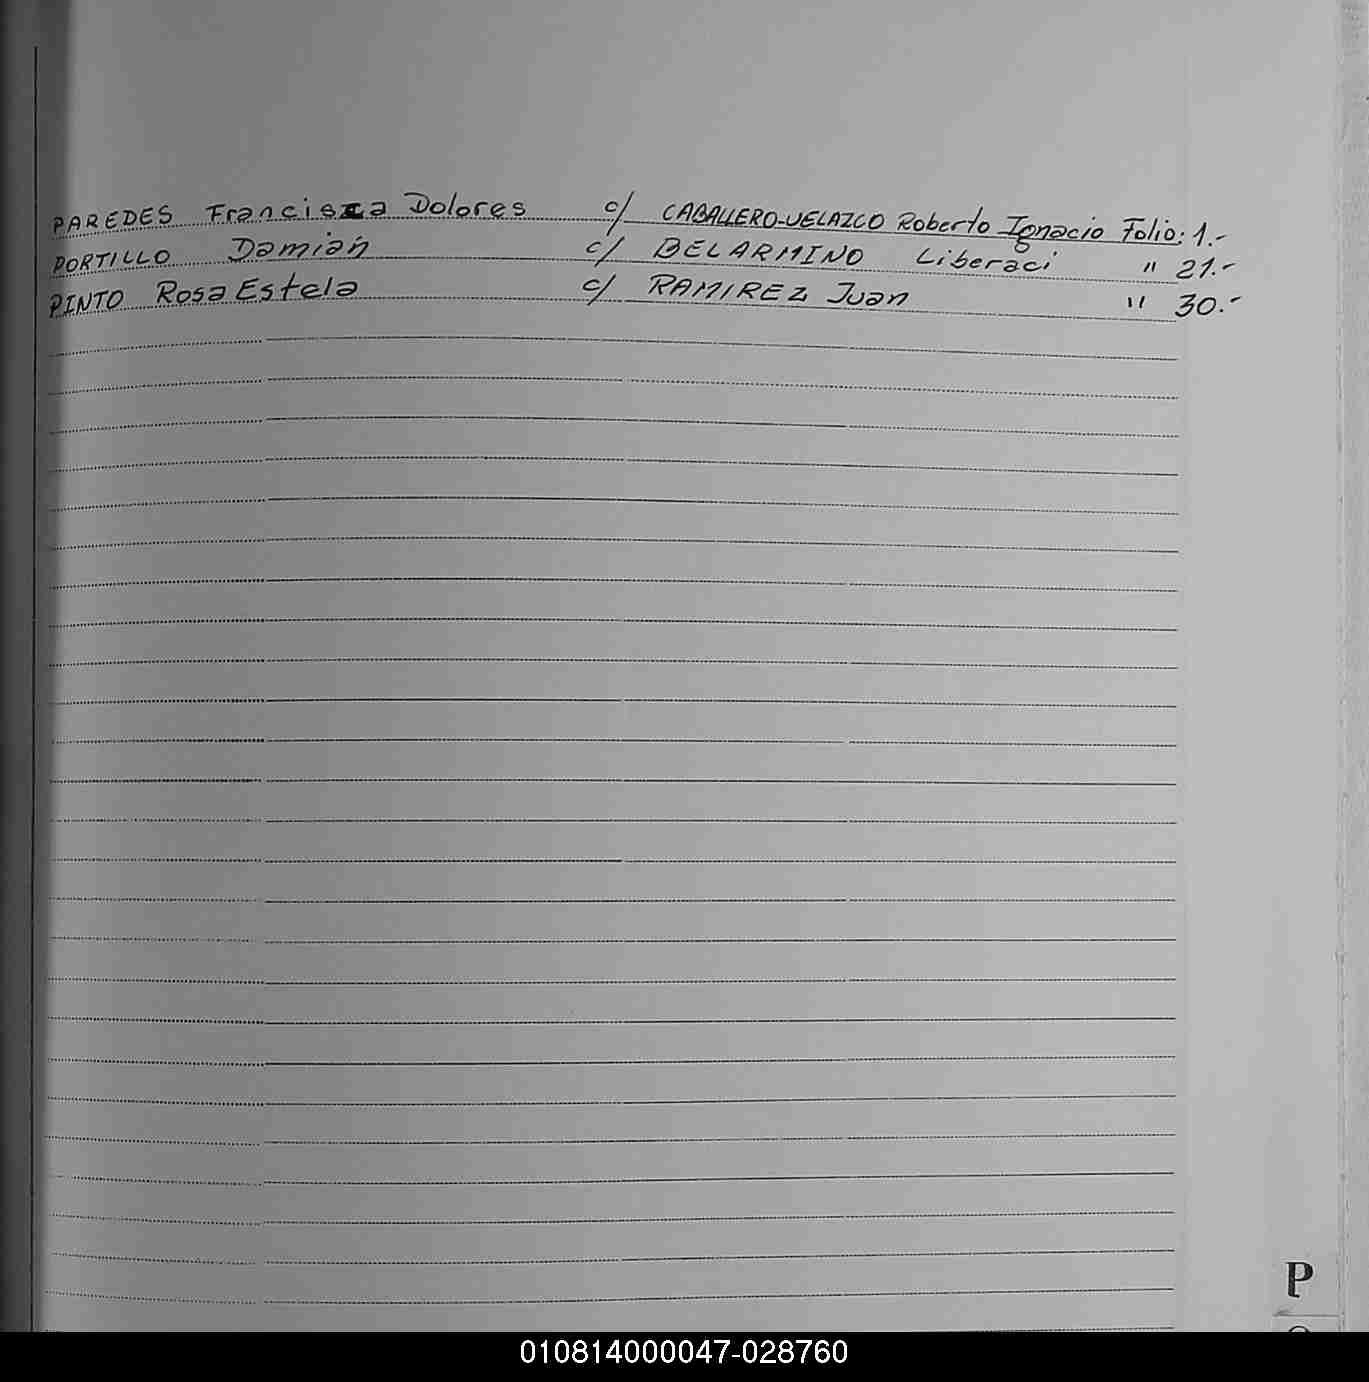 PAREDES Francisca Dolores c/ CABALLERO-VELAZCO Roberto Ignacio Folio: 1.-
PORTILLO Damián c/ BELARMINO Liberaci " 21.-
PINTO Rosa Estela c/ RAMIREZ Juan " 30.-
P
010814000047-028760